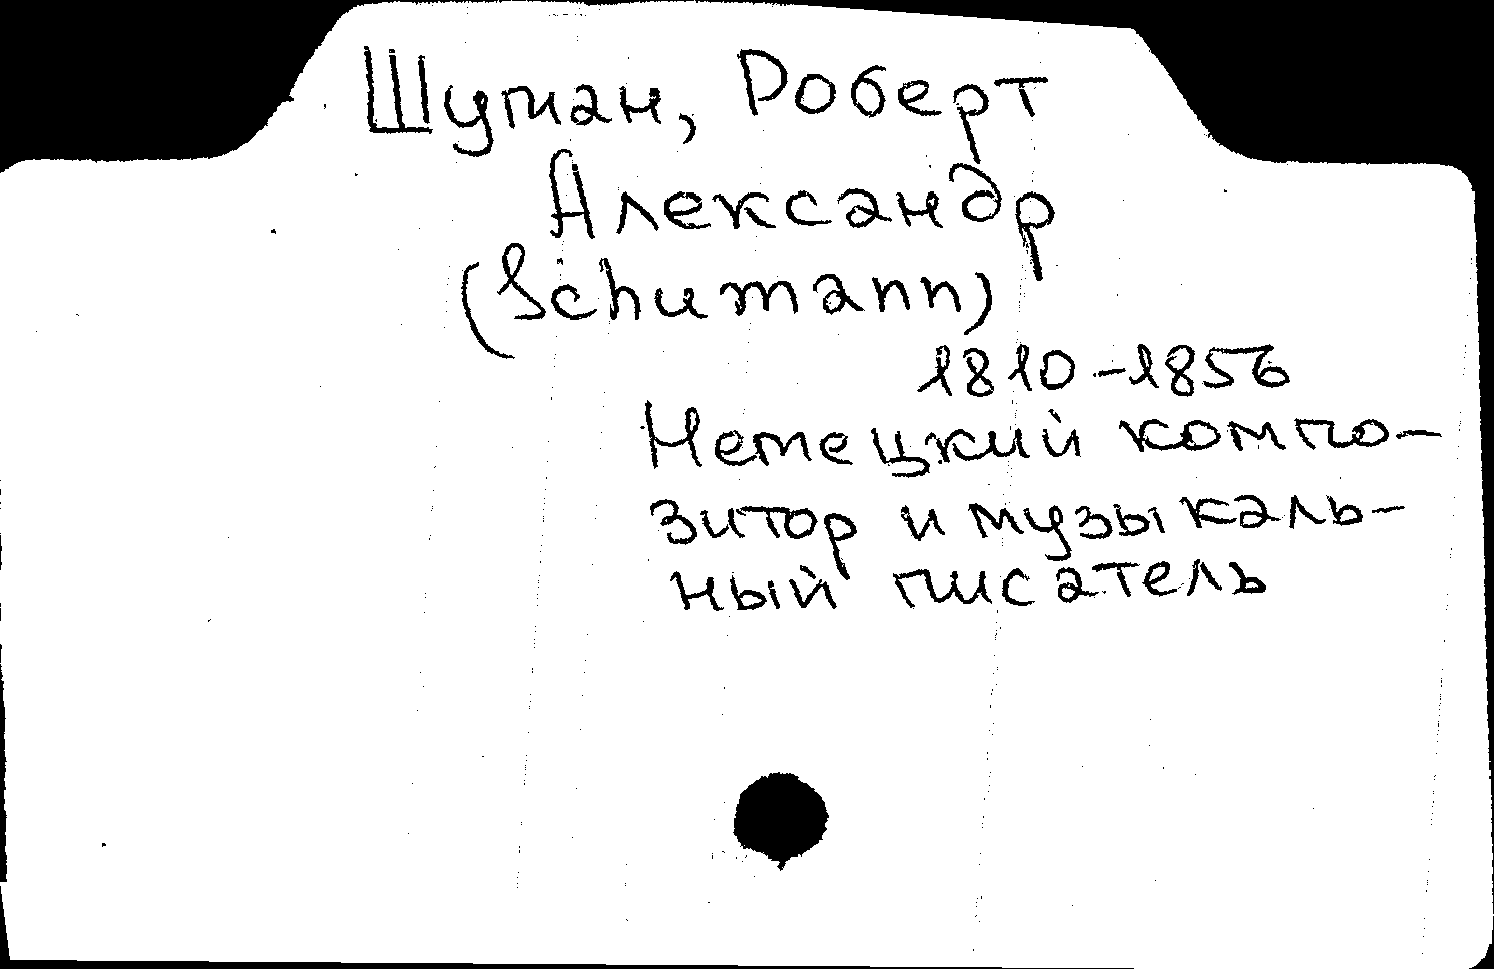 Шуман, Роберт
Александр
(Schumann)
1810-1856
Немецкий компо-
зитор и музыкаль-
ный писатель